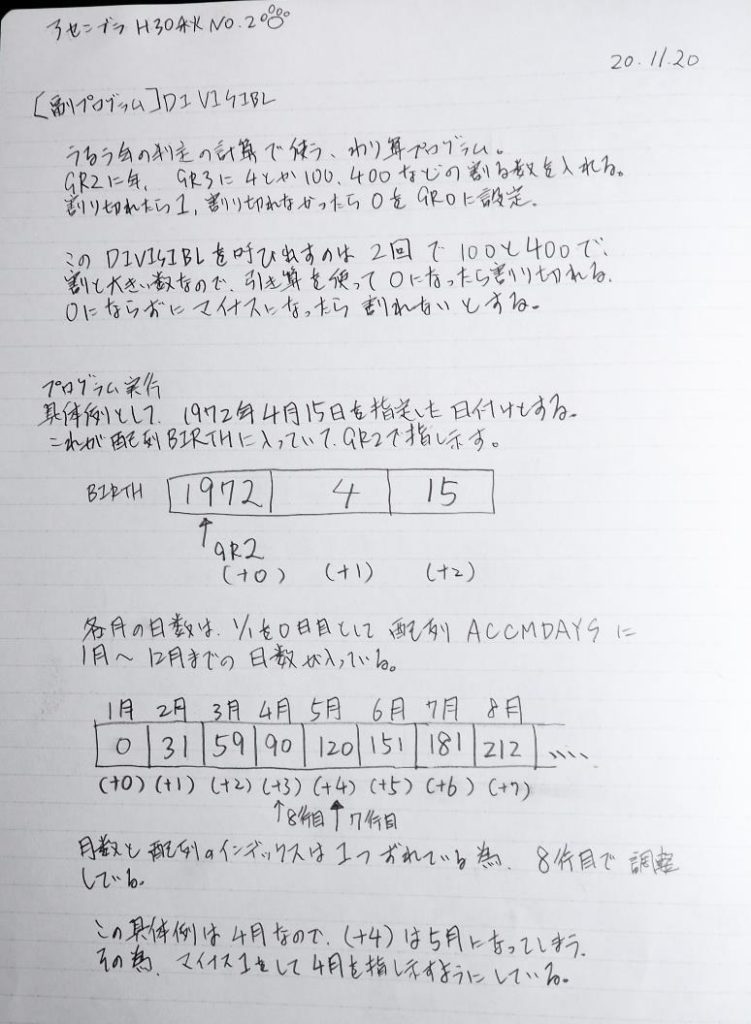 アセンブラ H30秋 NO.2
20.11.20
[副プログラム]DIVISIBL
うるう年の判定の計算で使う、わり算プログラム。
GR2に年、GR3に4とか100、400などの割る数を入れる。
割り切れたら1、割り切れなかったら0をGR0に設定。
このDIVISIBLを呼び出すのは2回で100と400で、
割と大きい数なので、引き算を使って0になったら割り切れる、
0にならずにマイナスになったら割れないとする。
プログラム実行
具体例として、1972年4月15日を指定した日付けとする。
これが配列BIRTHに入っていて、GR2で指し示す。
BIRTH 1972 4 15
↑GR2
(+0) (+1) (+2)
各月の日数は、1/1を0日目として配列ACCMDAYSに
1月～12月までの日数が入っている。
1月 2月 3月 4月 5月 6月 7月 8月
0 31 59 90 120 151 181 212 、、、、
(+0) (+1) (+2) (+3) (+4) (+5) (+6) (+7)
↑8行目 ↑7行目
月数と配列のインデックスは1つずれている為、8行目で調整
している。
この具体例は4月なので、(+4)は5月になってしまう。
その為、マイナス1をして4月を指し示すようにしている。